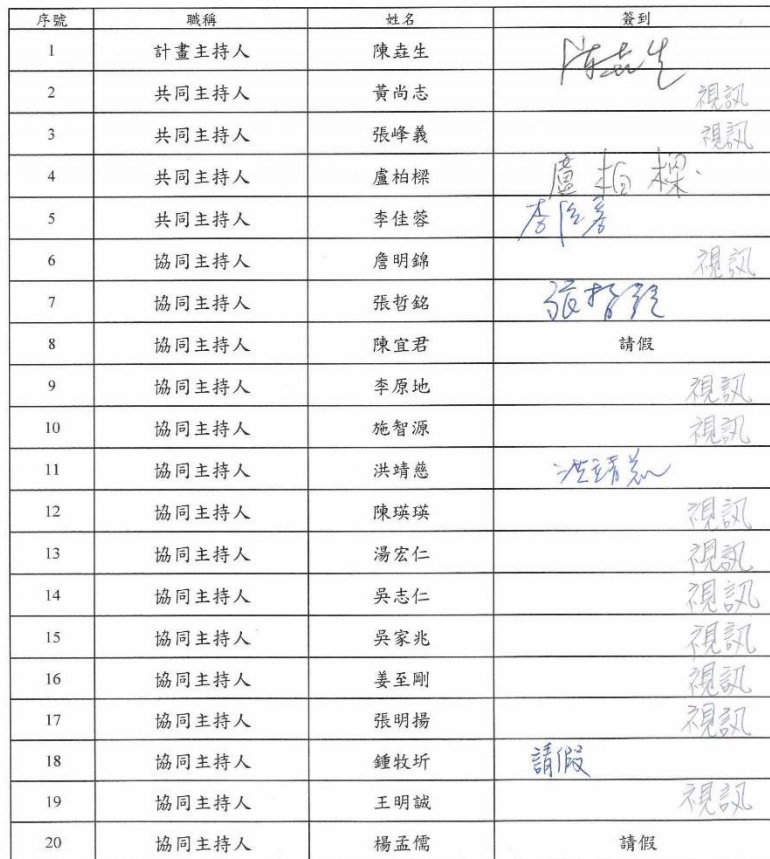 序號 職稱 姓名 簽到
1 計畫主持人 陳垚生 陳垚生
2 共同主持人 黃尚志 視訊
3 共同主持人 張峰義 視訊
4 共同主持人 盧柏樑 盧柏樑
5 共同主持人 李佳蓉 李佳蓉
6 協同主持人 詹明錦 視訊
7 協同主持人 張哲銘 張哲銘
8 協同主持人 陳宜君 請假
9 協同主持人 李原地 視訊
10 協同主持人 施智源 視訊
11 協同主持人 洪靖慈 洪靖慈
12 協同主持人 陳瑛瑛 視訊
13 協同主持人 湯宏仁 視訊
14 協同主持人 吳志仁 視訊
15 協同主持人 吳家兆 視訊
16 協同主持人 姜至剛 視訊
17 協同主持人 張明揚 視訊
18 協同主持人 鍾牧圻 請假
19 協同主持人 王明誠 視訊
20 協同主持人 楊孟儒 請假